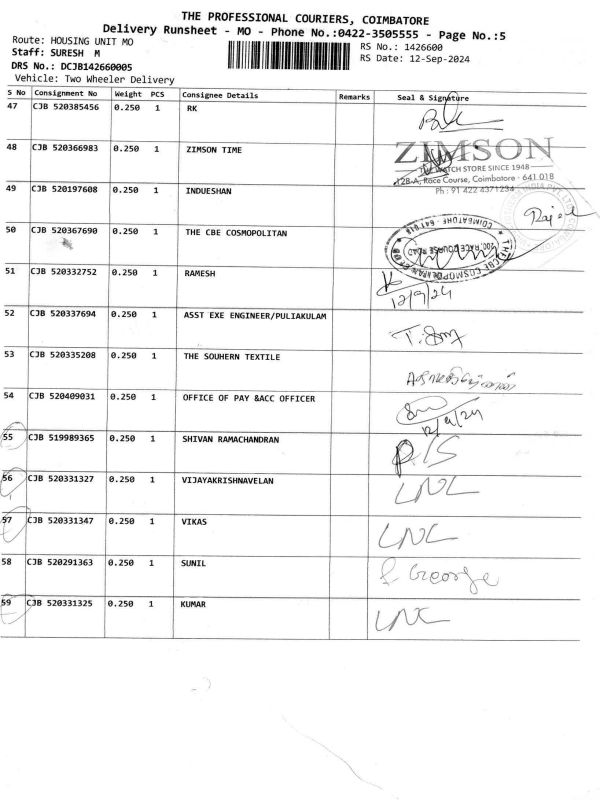 THE PROFESSIONAL COURIERS, COIMBATORE
Delivery Runsheet - MO - Phone No.:0422-3505555 - Page No.:5
Route: HOUSING UNIT MO
RS No.: 1426600
Staff: SURESH M
RS Date: 12-Sep-2024
DRS No.: DCJB142660005
Vehicle: Two Wheeler Delivery
S No Consignment No Weight PCS Consignee Details Remarks Seal & Signature
47 CJB 520385456 0.250 1 RK
48 CJB 520366983 0.250 1 ZIMSON TIME
ZIMSON
THE WATCH STORE SINCE 1948
12B-A, Race Course, Coimbatore - 641 018
Ph : 91 422 4371234
49 CJB 520197608 0.250 1 INDUESHAN
50 CJB 520367690 0.250 1 THE CBE COSMOPOLITAN
51 CJB 520332752 0.250 1 RAMESH
12/9/24
52 CJB 520337694 0.250 1 ASST EXE ENGINEER/PULIAKULAM
53 CJB 520335208 0.250 1 THE SOUHERN TEXTILE
54 CJB 520409031 0.250 1 OFFICE OF PAY &ACC OFFICER
12/9/24
55 CJB 519989365 0.250 1 SHIVAN RAMACHANDRAN
P/S
56 CJB 520331327 0.250 1 VIJAYAKRISHNAVELAN
LNL
57 CJB 520331347 0.250 1 VIKAS
LNL
58 CJB 520291363 0.250 1 SUNIL
George
59 CJB 520331325 0.250 1 KUMAR
LNC